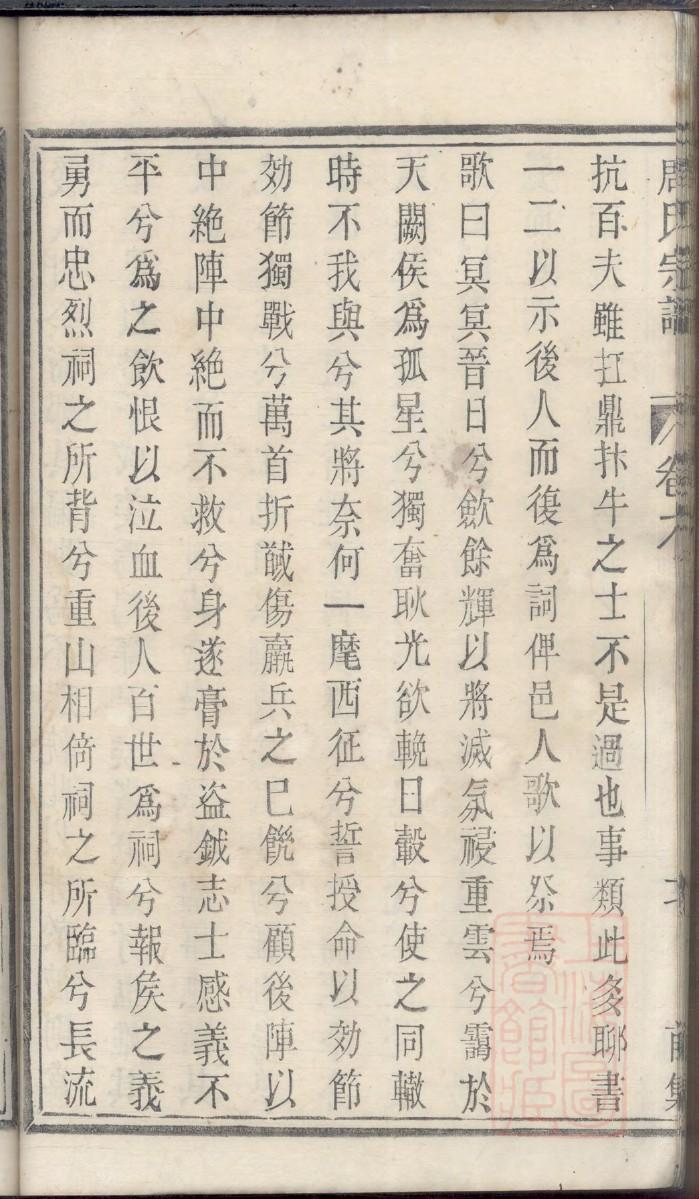 周氏宗譜　卷六　前集
抗百夫雖扛鼎抃牛之士不是過也事類此多聊書
一二以示後人而復爲詞俾邑人歌以祭焉
歌曰冥冥晉日兮歛餘輝以將滅氛祲重雲兮靄於
天闕侯爲孤星兮獨奮耿光欲輓日轂兮使之同轍
時不我與兮其將奈何一麾西征兮誓授命以効節
効節獨戰兮萬首折馘傷羸兵之已餽兮顧後陣以
中絶陣中絶而不救兮身遂膏於盗鉞志士感義不
平兮爲之飲恨以泣血後人百世爲祠兮報矦之義
勇而忠烈祠之所背兮重山相倚祠之所臨兮長流
上海圖書館藏